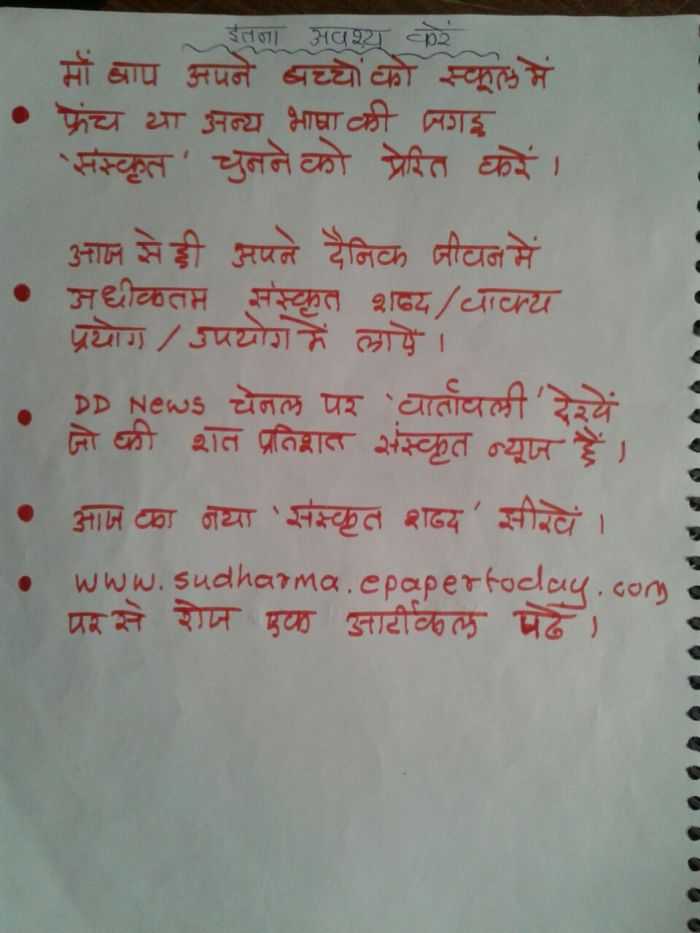 इतना अवश्य करें
माँ बाप अपने बच्चों को स्कूल में
फ्रेंच या अन्य भाषा की जगह
'संस्कृत' चुनने को प्रेरित करें ।
आज से ही अपने दैनिक जीवन में
अधीकतम संस्कृत शब्द / वाक्य
प्रयोग / उपयोग में लायें ।
DD News चेनल पर 'वार्तावली' देखें
जो की शत प्रतिशत संस्कृत न्यूज हैं ।
आज का नया 'संस्कृत शब्द' सीखें ।
www.sudharma.epapertoday.com
पर से रोज एक आर्टीकल पढें ।